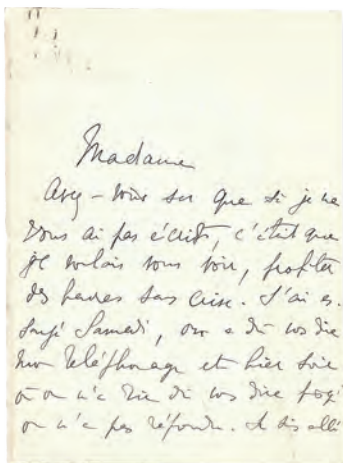 Madame
Avez-vous su que si je ne
vous ai pas écrit, c'était que
je voulais vous voir, profiter
des heures sans crise. J'ai es-
sayé Samedi, on a dû vous dire
mon téléphonage et hier soir
où on n'a rien dû vous dire
on n'a pas répondu. Je suis allé